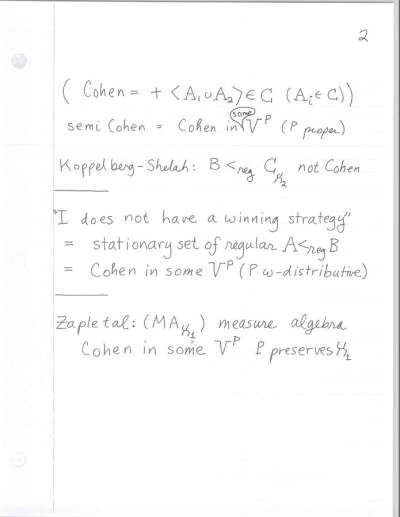 2
( Cohen = + <A₁ ∪ A₂> ∈ C (Aᵢ ∈ C))
semi Cohen = Cohen in some V^P (P proper)
Koppelberg-Shelah: B <_reg C_ℵ₂ not Cohen
"I does not have a winning strategy"
= stationary set of regular A <_reg B
= Cohen in some V^P (P ω-distributive)
Zapletal: (MA_ℵ₁) measure algebra
Cohen in some V^P P preserves ℵ₁